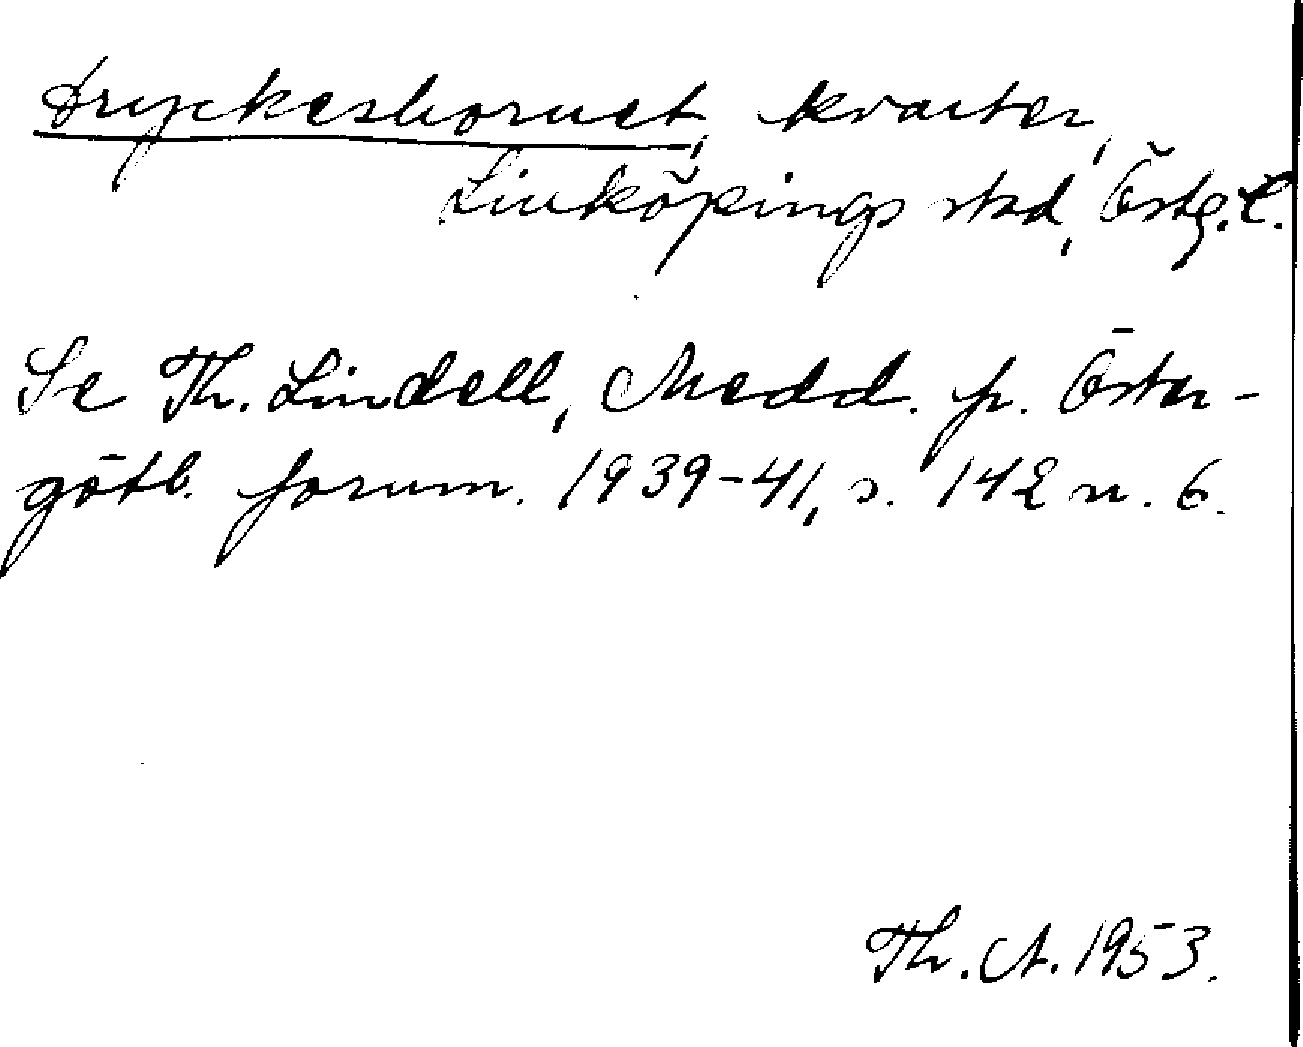 Dryckeshornet, kvarter,
Linköpings stad, Östg. l.
Se Th. Lindell, Medd. fr. Öster-
götl. fornm. 1939-41, s. 142 n. 6.
Th. A. 1953.